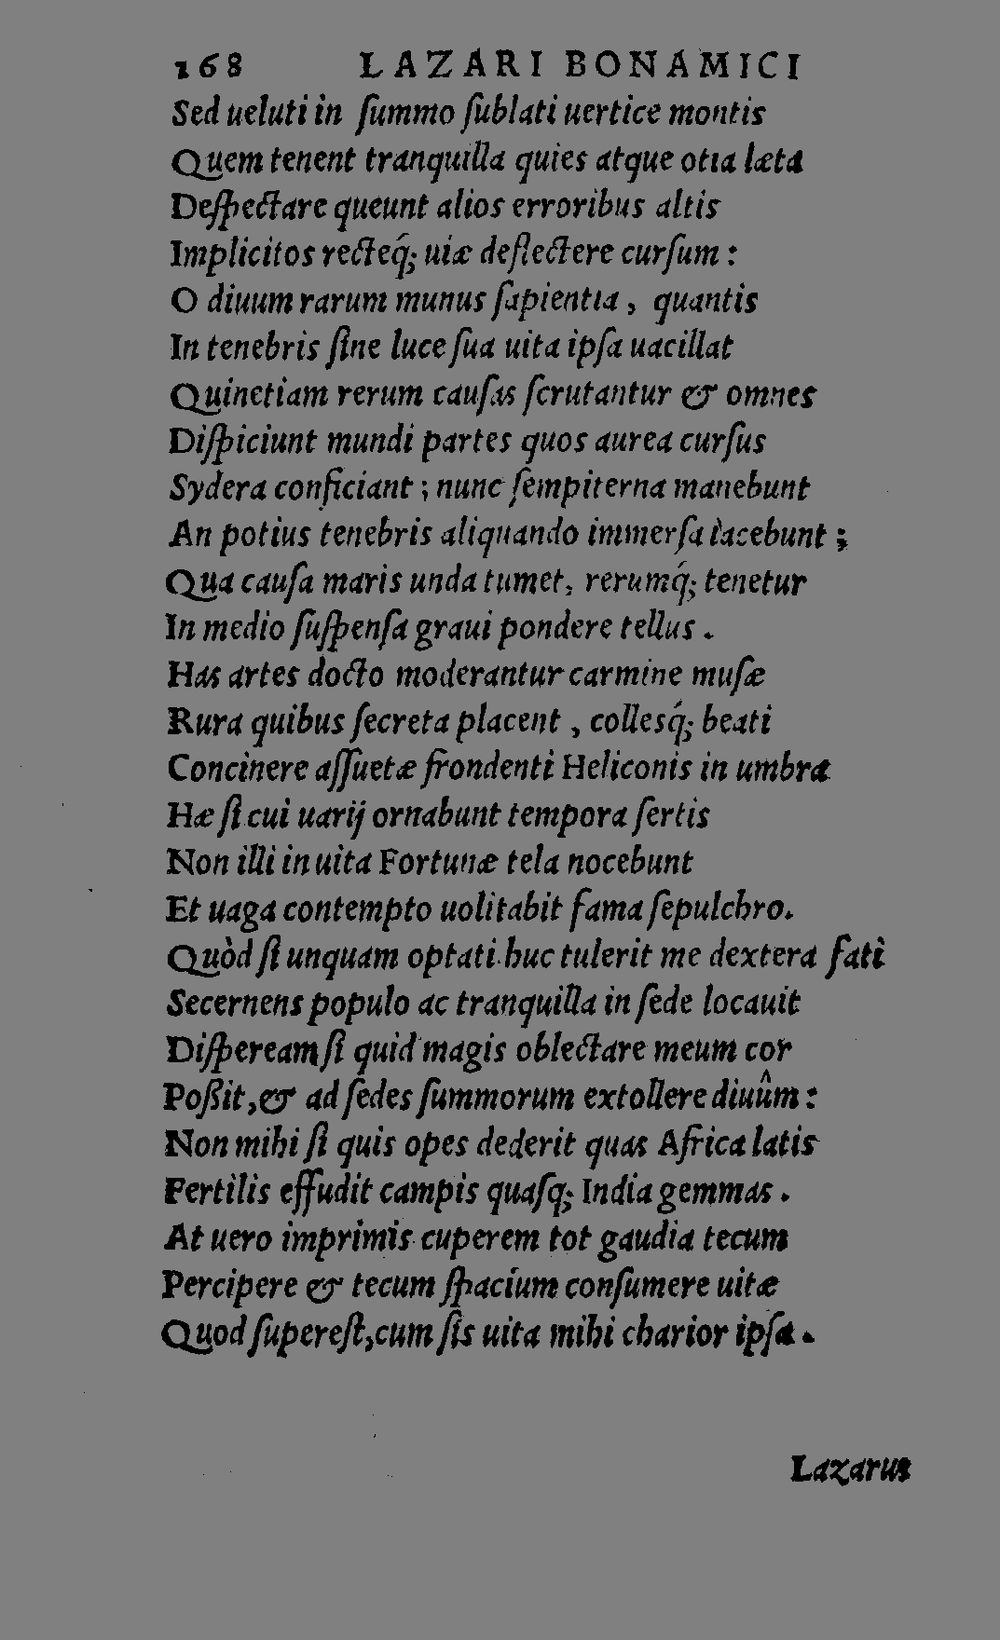 168 LAZARI BONAMICI
Sed ueluti in ſummo ſublati uertice montis
Quem tenent tranquilla quies atque otia læta
Deſpectare queunt alios erroribus altis
Implicitos recteq́; uiæ deflectere curſum :
O diuum rarum munus ſapientia , quantis
In tenebris ſine luce ſua uita ipſa uacillat
Quinetiam rerum cauſas ſcrutantur & omnes
Diſpiciunt mundi partes quos aurea curſus
Sydera conficiant ; nunc ſempiterna manebunt
An potius tenebris aliquando immerſa iacebunt ;
Qua cauſa maris unda tumet, rerumq́; tenetur
In medio ſuſpenſa graui pondere tellus .
Has artes docto moderantur carmine muſæ
Rura quibus ſecreta placent , collesq́; beati
Concinere aſſuetæ frondenti Heliconis in umbra
Hæ ſi cui uarij ornabunt tempora ſertis
Non illi in uita Fortunæ tela nocebunt
Et uaga contempto uolitabit fama ſepulchro.
Quòd ſi unquam optati huc tulerit me dextera fati
Secernens populo ac tranquilla in ſede locauit
Diſpeream ſi quid magis oblectare meum cor
Poßit, & ad ſedes ſummorum extollere diuûm :
Non mihi ſi quis opes dederit quas Africa latis
Fertilis effudit campis quaſq; India gemmas .
At uero imprimis cuperem tot gaudia tecum
Percipere & tecum ſpacium conſumere uitæ
Quod ſupereſt, cum ſis uita mihi charior ipſa .
Lazarus